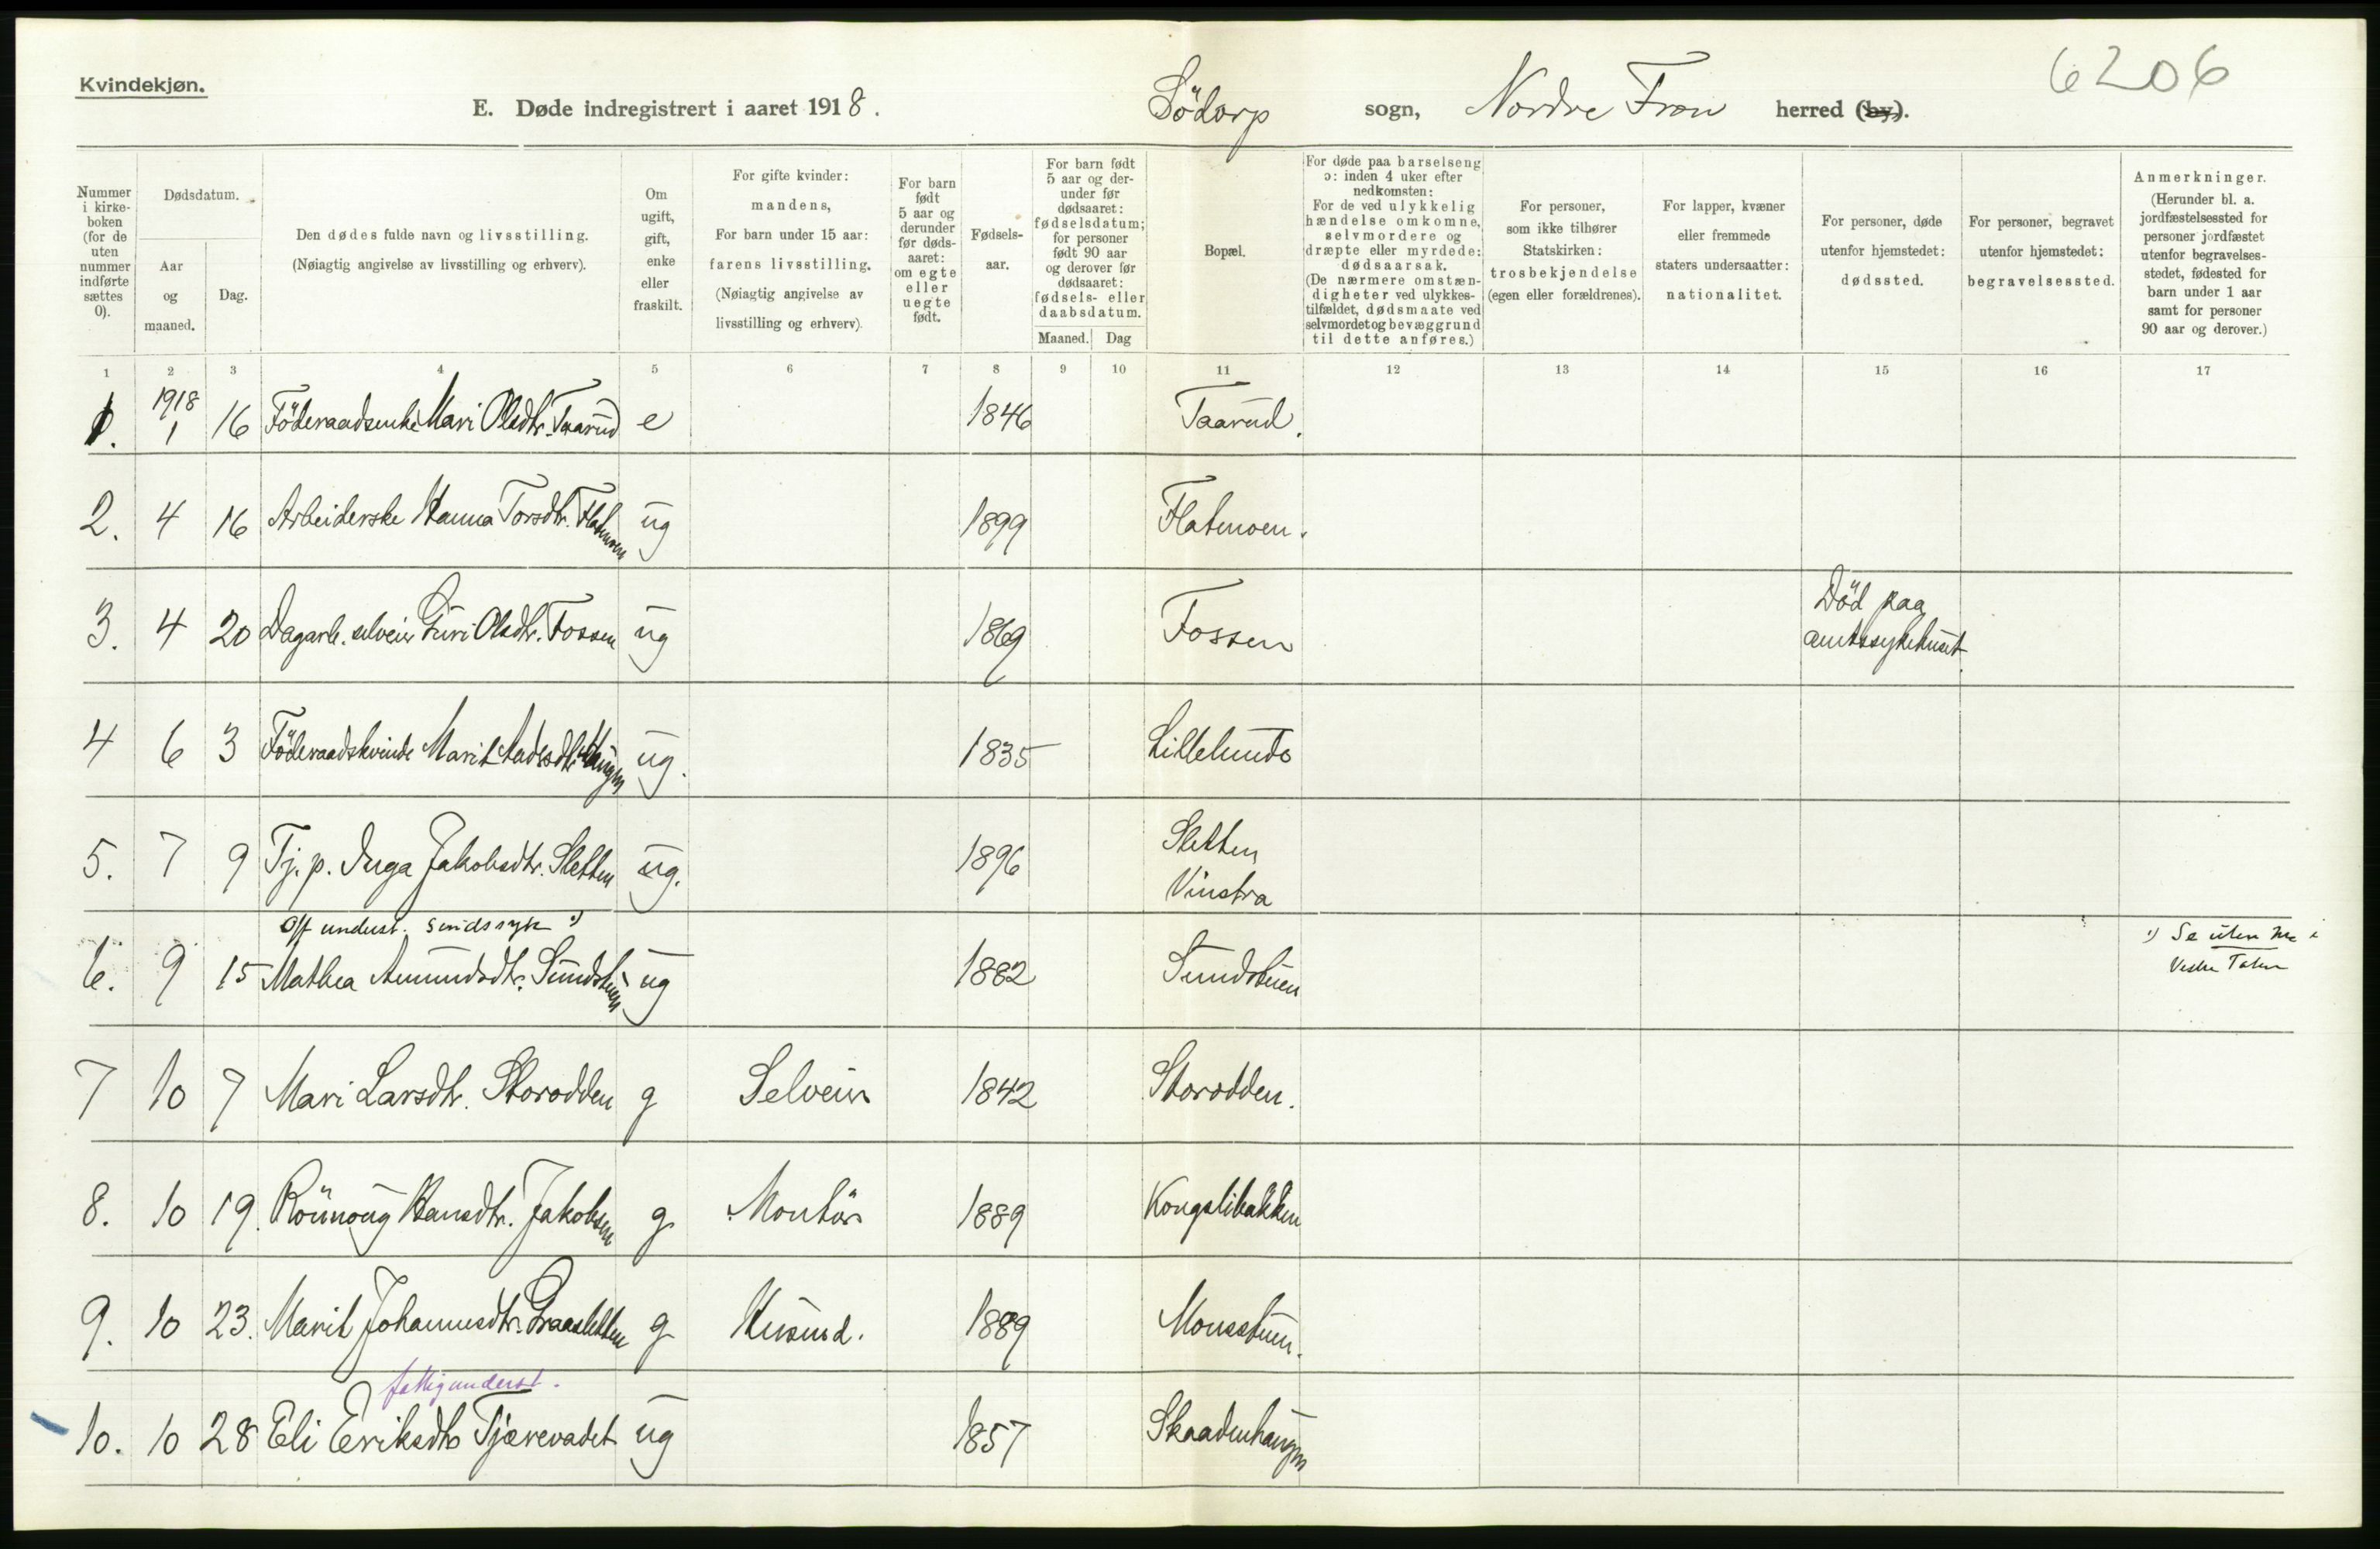 Kvindekjøn.
6206
E. Døde indregistrert i aaret 1918. Södorp sogn, Nordre Fron herred (by).
Nummer i kirkeboken (for de uten nummer indførte sættes 0).
Dødsdatum.
Aar og maaned.
Dag.
Den dødes fulde navn og livsstilling.
(Nøiagtig angivelse av livsstilling og erhverv).
Om ugift, gift, enke eller fraskilt.
For gifte kvinder: mandens,
For barn under 15 aar: farens livsstilling.
(Nøiagtig angivelse av livsstilling og erhverv).
For barn født 5 aar og derunder før dødsaaret: om egte eller uegte født.
Fødselsaar.
For barn født 5 aar og derunder før dødsaaret: fødselsdatum; for personer født 90 aar og derover før dødsaaret: fødsels- eller daabsdatum.
Maaned. Dag
Bopæl.
For døde paa barselseng ɔ: inden 4 uker efter nedkomsten:
For de ved ulykkelig hændelse omkomne, selvmordere og dræpte eller myrdede: dødsaarsak.
(De nærmere omstændigheter ved ulykkestilfældet, dødsmaate ved selvmordet og bevæggrund til dette anføres.)
For personer, som ikke tilhører Statskirken: trosbekjendelse (egen eller forældrenes).
For lapper, kvæner eller fremmede staters undersaatter: nationalitet.
For personer, døde utenfor hjemstedet: dødssted.
For personer, begravet utenfor hjemstedet: begravelsessted.
Anmerkninger.
(Herunder bl. a. jordfæstelsessted for personer jordfæstet utenfor begravelsesstedet, fødested for barn under 1 aar samt for personer 90 aar og derover.)
1 2 3 4 5 6 7 8 9 10 11 12 13 14 15 16 17
1918
1. 1 16 Föderaadsenke Mari Olsdtr. Taarud e 1846 Taarud.
2. 4 16 Arbeiderske Hanna Torsdtr. Flatmoen ug 1899 Flatmoen.
Död paa
3. 4 20 Dagarb. selveier Guri Olsdtr. Fossen ug 1869 Fossen amtssykehuset.
4 6 3 Föderaadskvinde Marit Haugen ug. 1835 Lillelunde
5. 7 9 Tj. p. Inga Jakobsdtr. Sletten ug. 1896 Sletten
Vinstra
Off underst. sindssyk ¹)
6. 9 15 Mathea Amundsdtr. Sundstuen ug 1882 Sundstuen ¹) Se
7 10 7 Mari Larsdtr. Storodden g Selveier 1842 Storodden.
8. 10 19. Rönnoug Hansdtr. Jakobsen g Montör 1889 Kongslibakken
9. 10 23. Marit Johannesdtr. Graasletten g Husmd. 1889 Monsstuen.
fattigunderst.
10. 10 28 Eli Eriksdtr Tjærevadet ug 1857 Skaadenhaugen